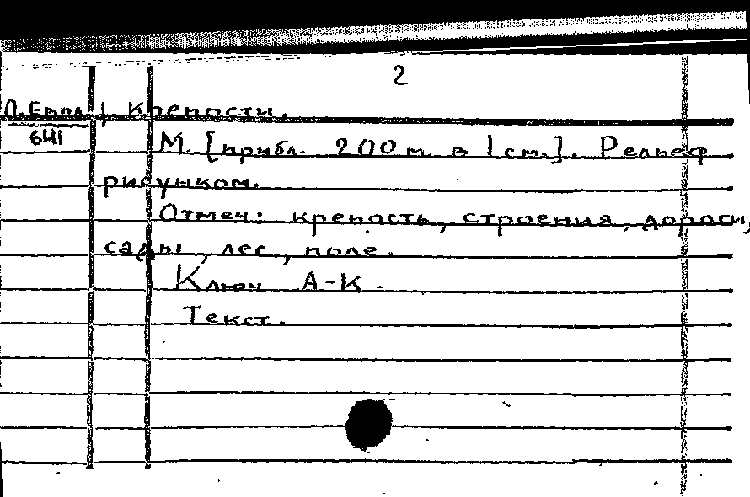 2
Крепости.
641
М. [прибл. 200 м. в 1 см.]. Рельеф
рисунком.
Отмеч: крепость, строения, дороги,
сады, лес, поле.
Ключ А-К.
Текст.